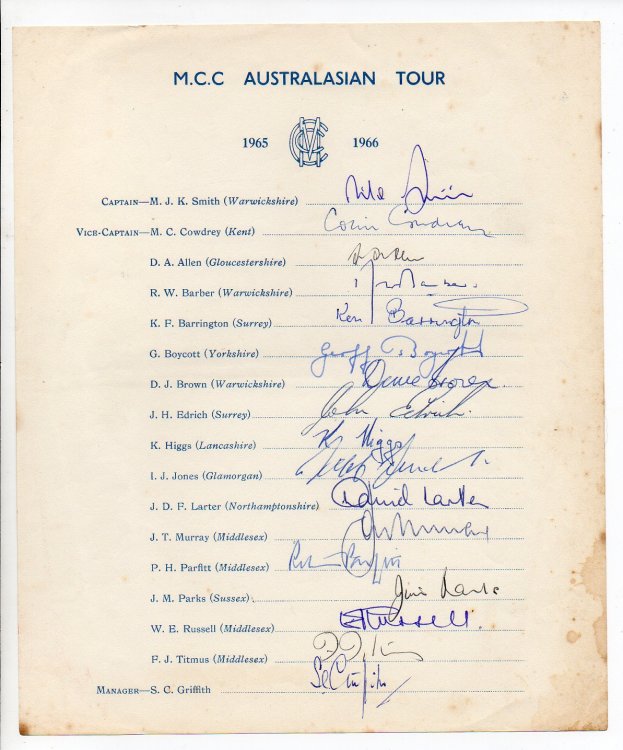 M.C.C AUSTRALASIAN TOUR
1965 MCC 1966
CAPTAIN—M. J. K. Smith (Warwickshire) Mike Smith
VICE-CAPTAIN—M. C. Cowdrey (Kent) Colin Cowdrey
D. A. Allen (Gloucestershire)
R. W. Barber (Warwickshire)
K. F. Barrington (Surrey) Ken Barrington
G. Boycott (Yorkshire) Geoff Boycott
D. J. Brown (Warwickshire)
J. H. Edrich (Surrey) John Edrich.
K. Higgs (Lancashire) K Higgs
I. J. Jones (Glamorgan)
J. D. F. Larter (Northamptonshire) David Larter
J. T. Murray (Middlesex)
P. H. Parfitt (Middlesex)
J. M. Parks (Sussex) Jim Parks
W. E. Russell (Middlesex) Russell.
F. J. Titmus (Middlesex)
MANAGER—S. C. Griffith